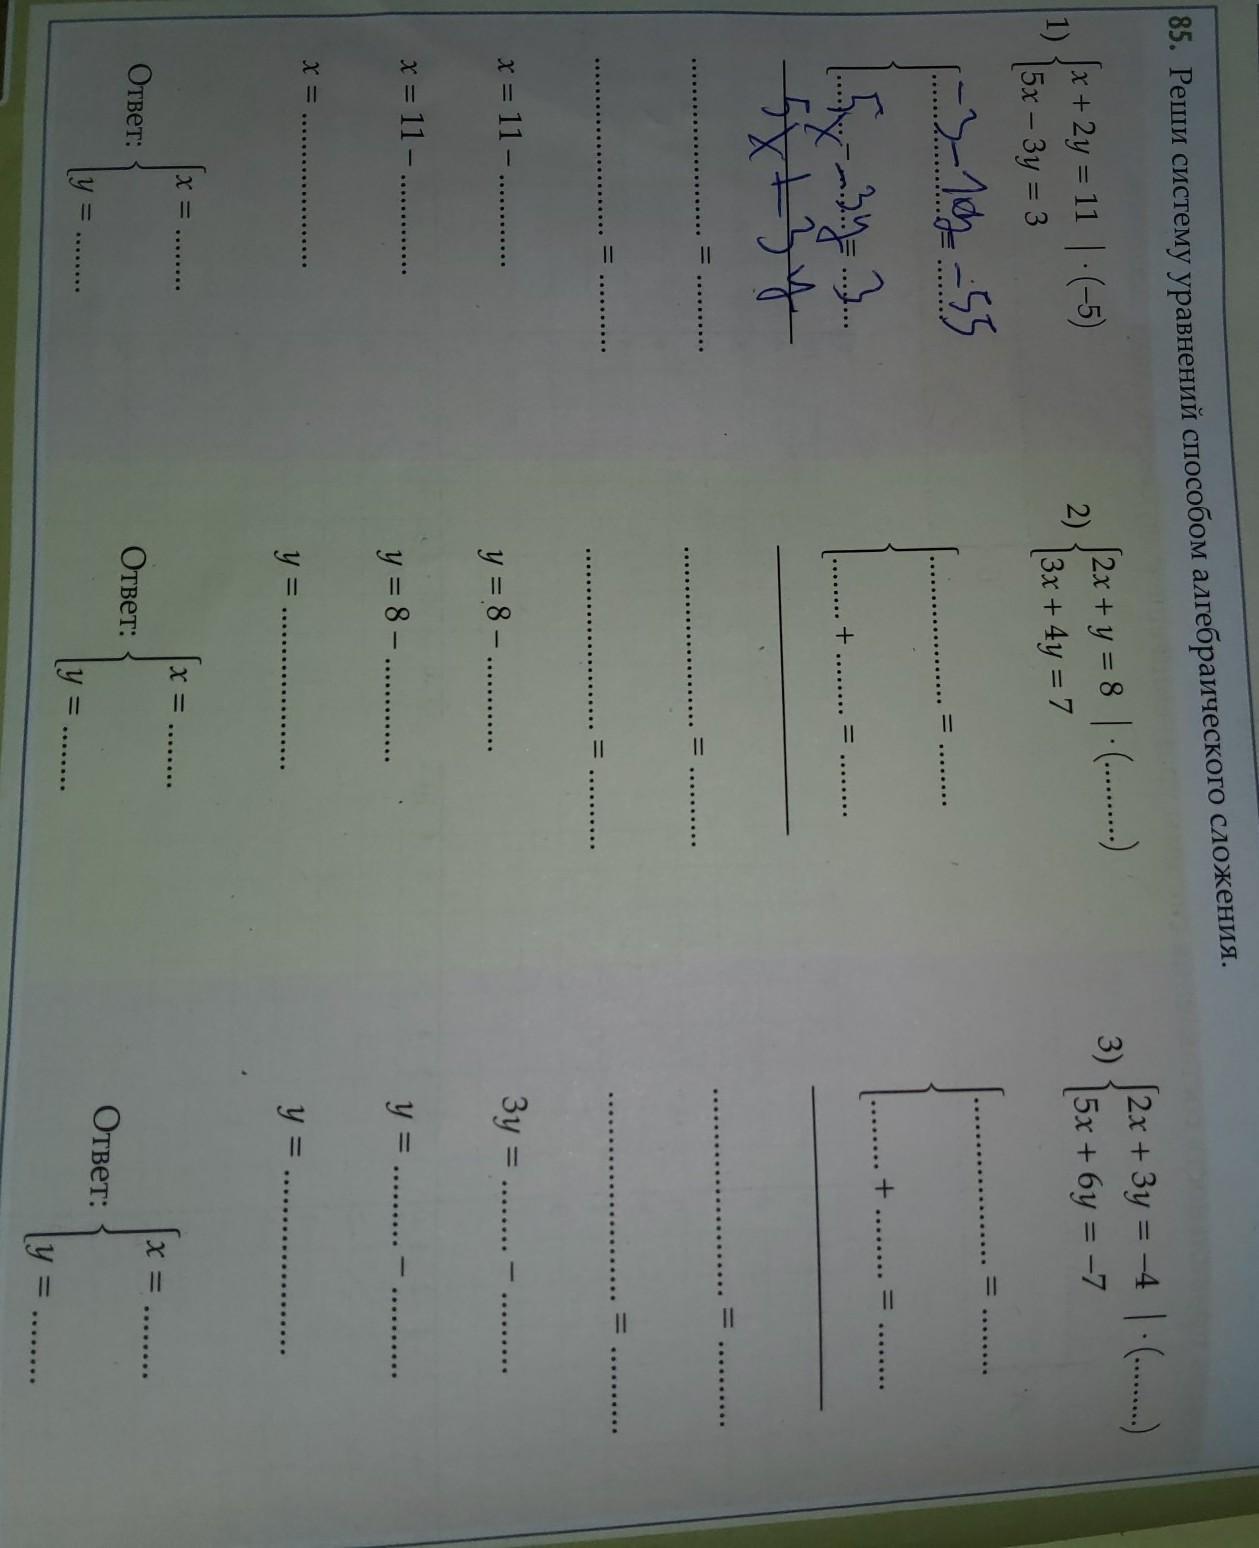 85. Реши систему уравнений способом алгебраического сложения.
1) { x + 2y = 11 | · (–5)
5x – 3y = 3
{ –3–10y = –55
5x – 3y = 3
5x + 3y
.................... = .........
.................... = ..........
x = 11 – ..........
x = 11 – ...........
x = .................
Ответ: { x = ........
y = ........
2) { 2x + y = 8 | · (..........)
3x + 4y = 7
{ ................ = ........
........ + ........ = ........
.................... = ..........
.................... = ..........
y = 8 – ..........
y = 8 – ...........
y = ..................
Ответ: { x = ........
y = ........
3) { 2x + 3y = –4 | · (.........)
5x + 6y = –7
{ .................. = .........
........ + ........ = ........
...................... = ..........
...................... = ..........
3y = ........ – .........
y = ......... – ..........
y = ....................
Ответ: { x = .........
y = .........